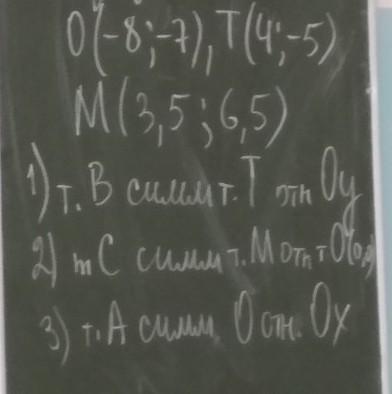 O(-8;-7), T(4;-5)
M(3,5;6,5)
1) т. В симм т. Т отн Оу
2) т С симм т. М отн т О(0,0)
3) т. А симм. О отн. Ох